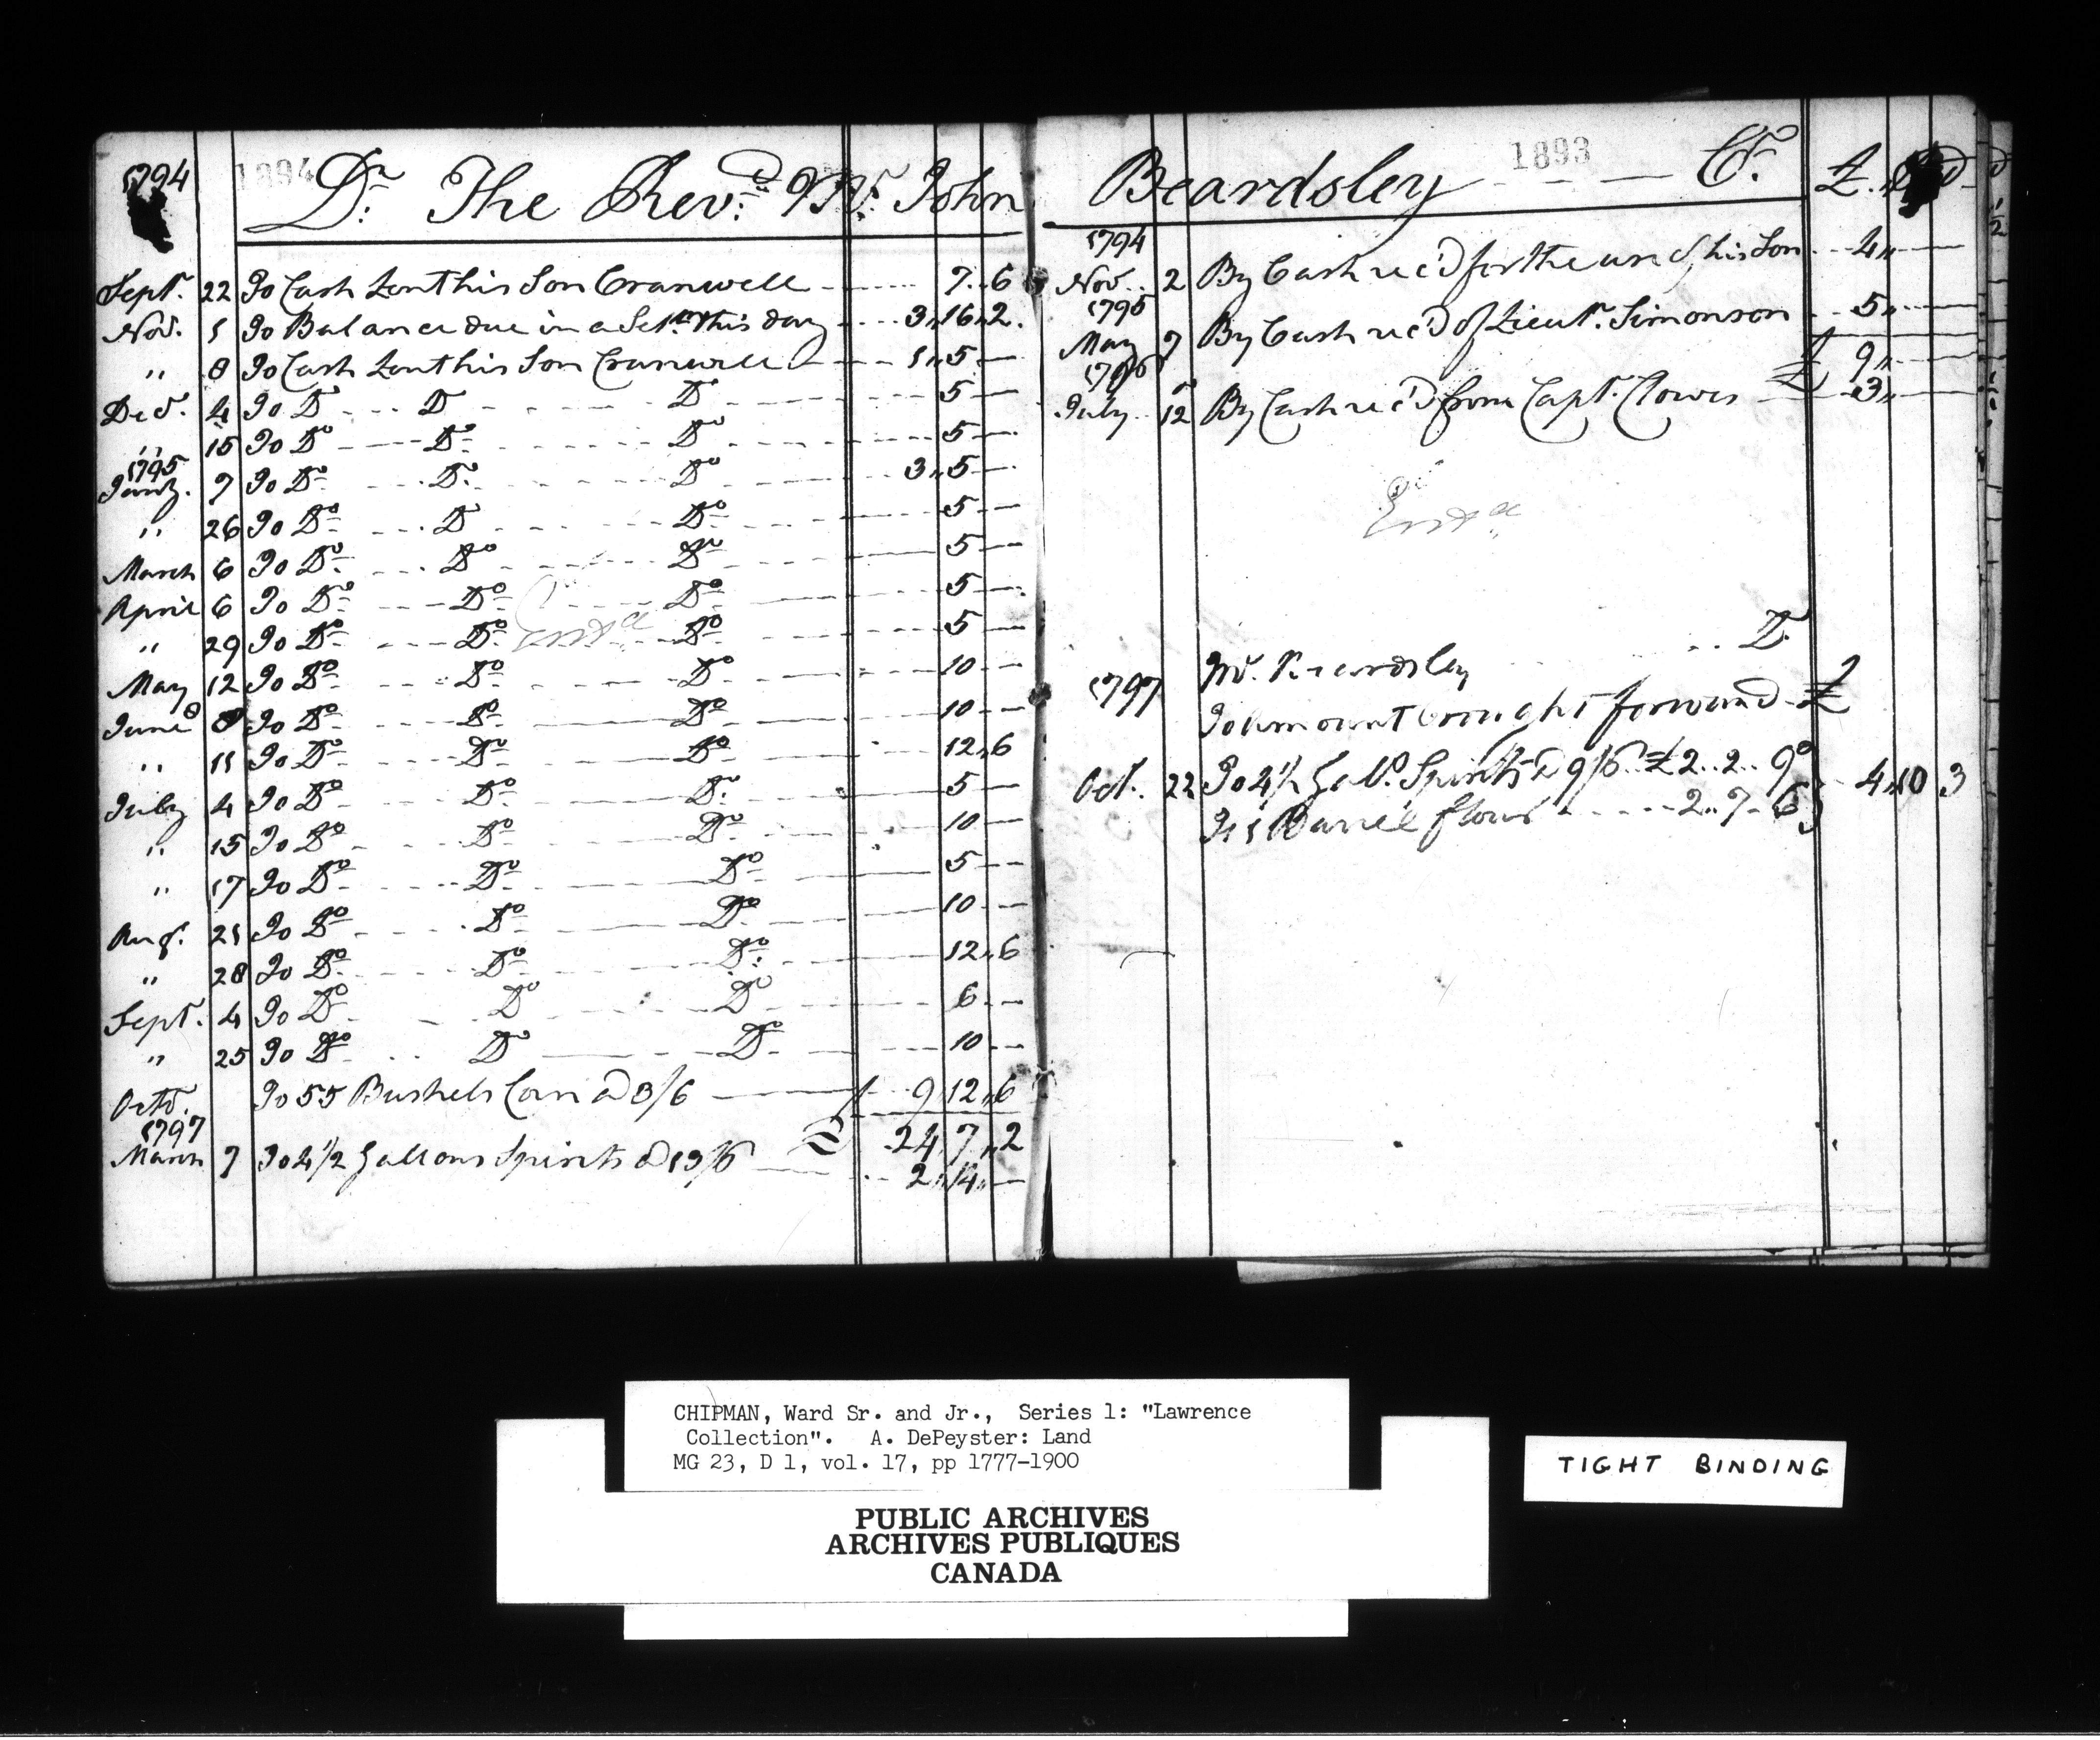 1794 1894 Dr. The Revd. Mr. John
Sept. 22 To Cash Lent his Son Cranwell 7..6
Nov. 1 To Balance due in a Setm. this day 3,,16,,2.
,, 8 To Cash Lent his Son Cranwell 1,,5 —
Dec. 4 To Do Do Do 5 —
,, 15 To Do Do Do 5 —
1795
Jany. 7 To Do Do Do 3,,5 —
,, 26 To Do Do Do 5 —
March 6 To Do Do Do 5 —
April 6 To Do Do Do 5 —
,, 29 To Do Do Entd Do 5 —
May 12 To Do Do Do 10 —
June 8 To Do Do Do 10 —
,, 11 To Do Do Do 12,,6
July 4 To Do Do Do 5 —
,, 15 To Do Do Do 10 —
,, 17 To Do Do Do 5 —
Aug. 21 To Do Do Do 10 —
,, 28 To Do Do Do 12,,6
Sept. 4 To Do Do Do 6 —
,, 25 To Do Do Do 10 —
Octo. To 55 Bushels Corn @ 3/6 9,,12,,6
£ 24,,7,,2
1797
March 7 To 4 1/2 Gallons Spirits @ 12/6 2,,14,,—
Beardsley 1893 Cr. £
1794
Nov. 2 By Cash rec'd for the use of his Son 4,,
1795
May 7 By Cash rec'd of Lieut. Simonson 5,,
£ 9,,
1796
July 12 By Cash rec'd from Capt. Clowes 3,,
Entd
Mr. Beardsley Dr.
1797 To Amount brought forward £
Oct. 22 To 4 1/2 Galls. Spirits @ 9/6 £2..2..9
To 1 Barrel flour 2..7..6 4,,10 3
CHIPMAN, Ward Sr. and Jr., Series 1: "Lawrence
Collection". A. DePeyster: Land
MG 23, D 1, vol. 17, pp 1777-1900
PUBLIC ARCHIVES
ARCHIVES PUBLIQUES
CANADA
TIGHT BINDING